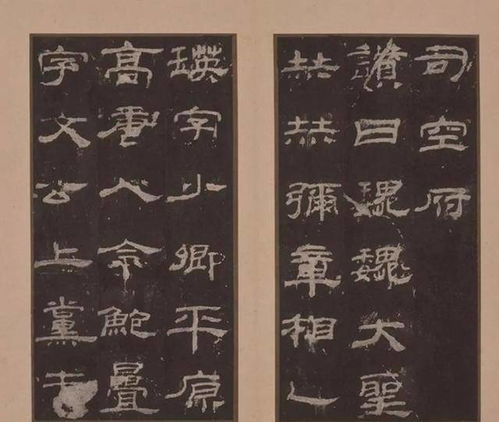 司空府
讚曰巍巍大聖
赫赫彌章相乙
瑛字少卿平原
高唐人令鮑疊
字文公上黨屯